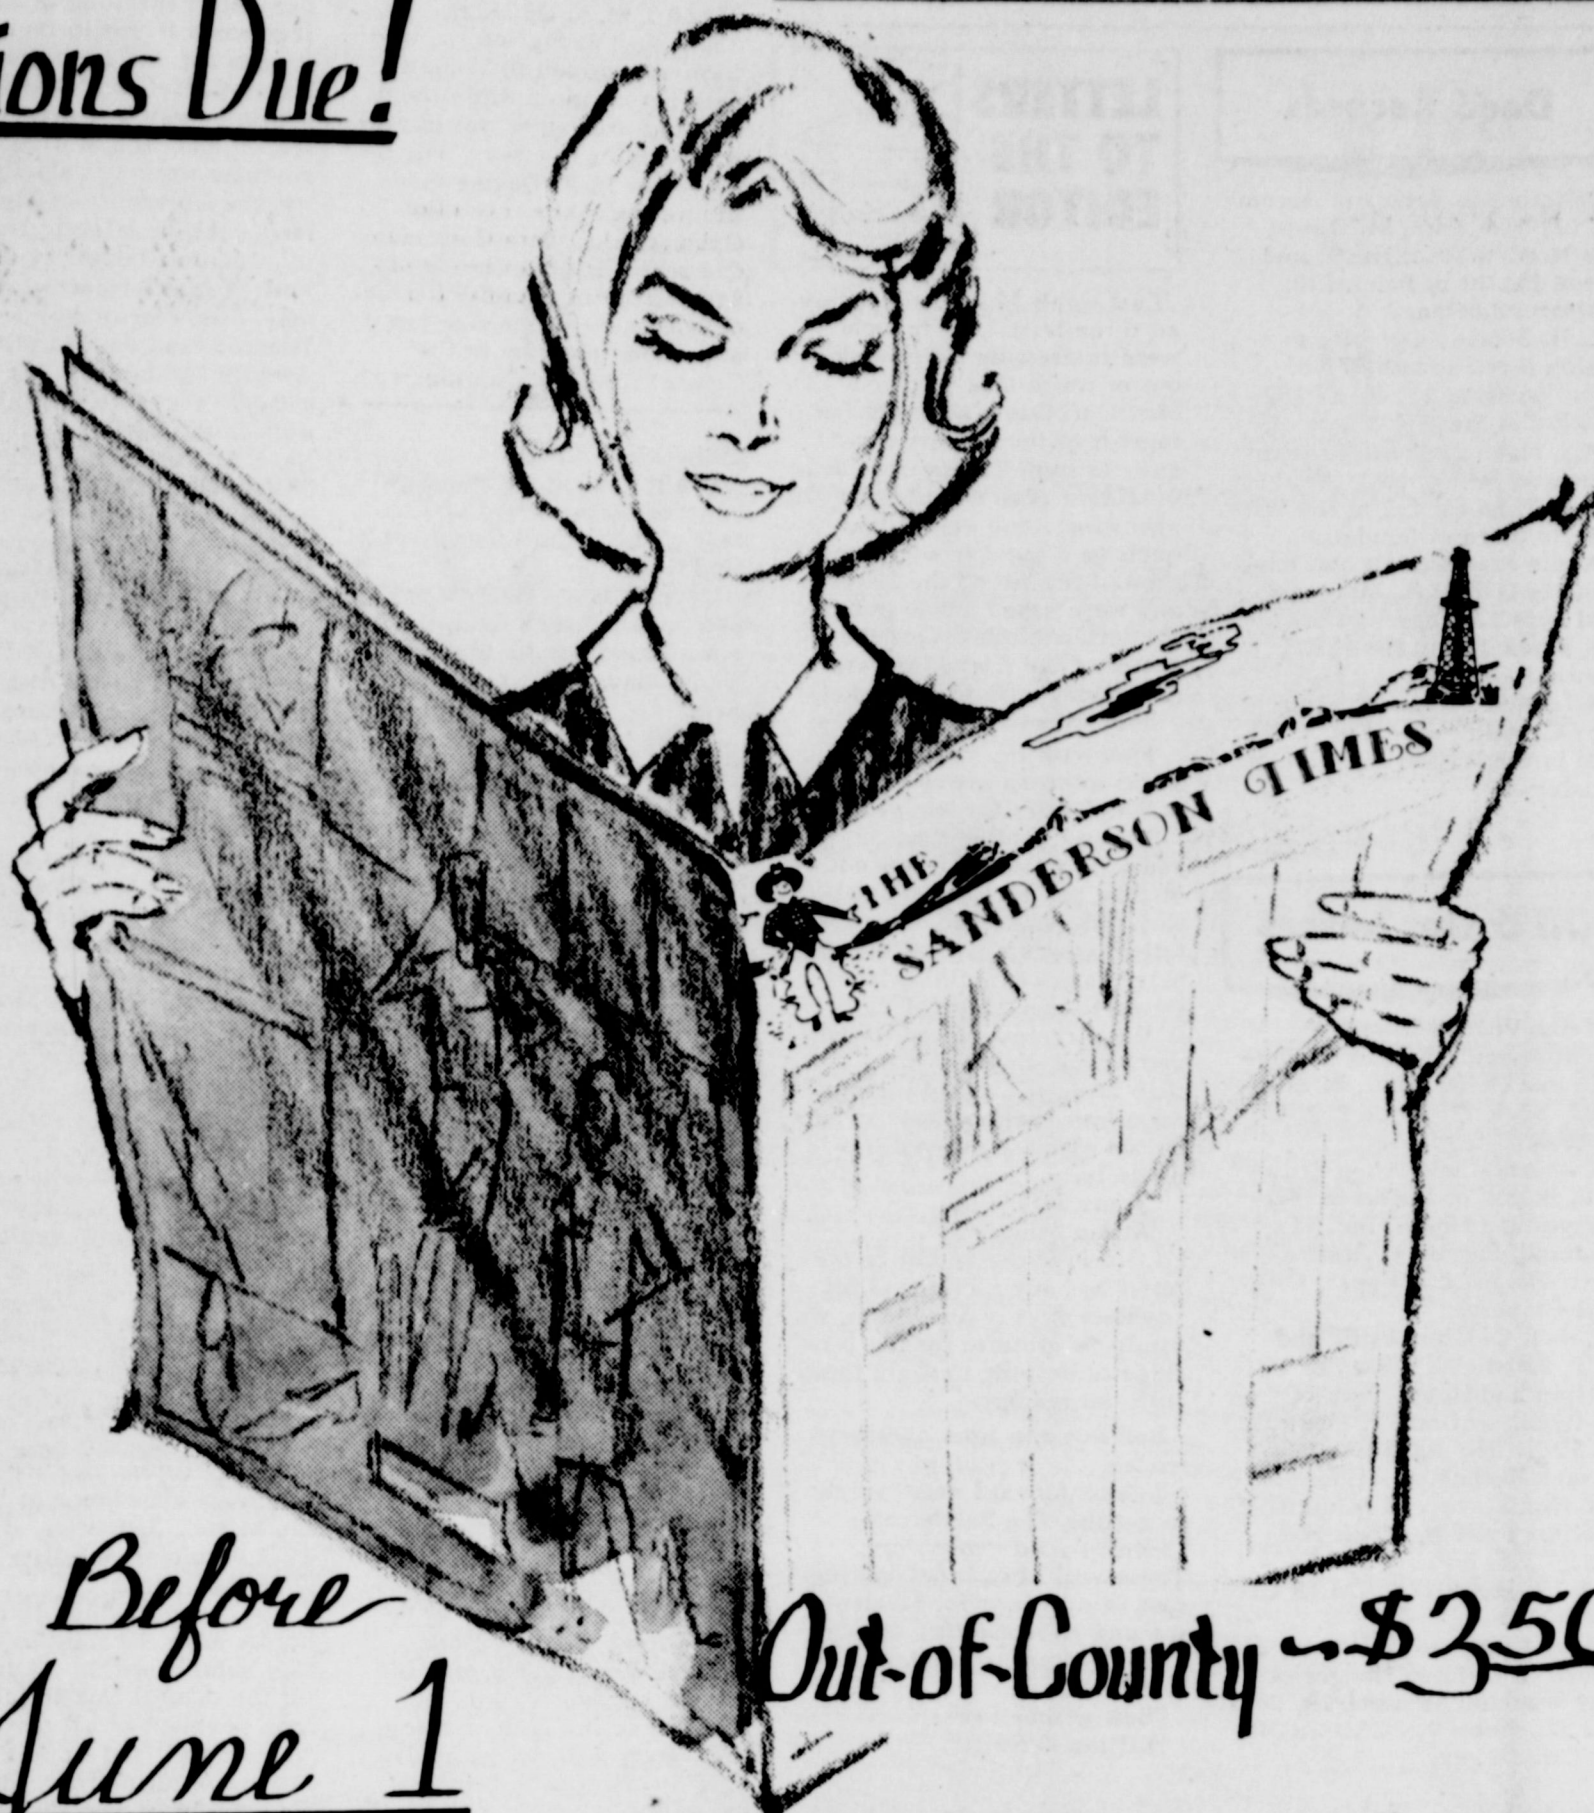 ions Due!
THE
SANDERSON TIMES
Before
June 1
Out-of-County - $3.50